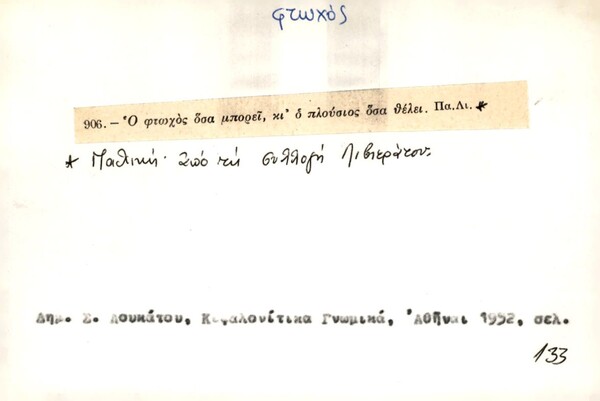 φτωχός
906. — Ὁ φτωχὸς ὅσα μπορεῖ, κι' ὁ πλούσιος ὅσα θέλει. Πα.Λι. *
* Παλική· ἀπό τή συλλογή Λιβιεράτου.
Δημ. Σ. Λουκάτου, Κεφαλονίτικα Γνωμικά, Ἀθῆναι 1952, σελ.
133